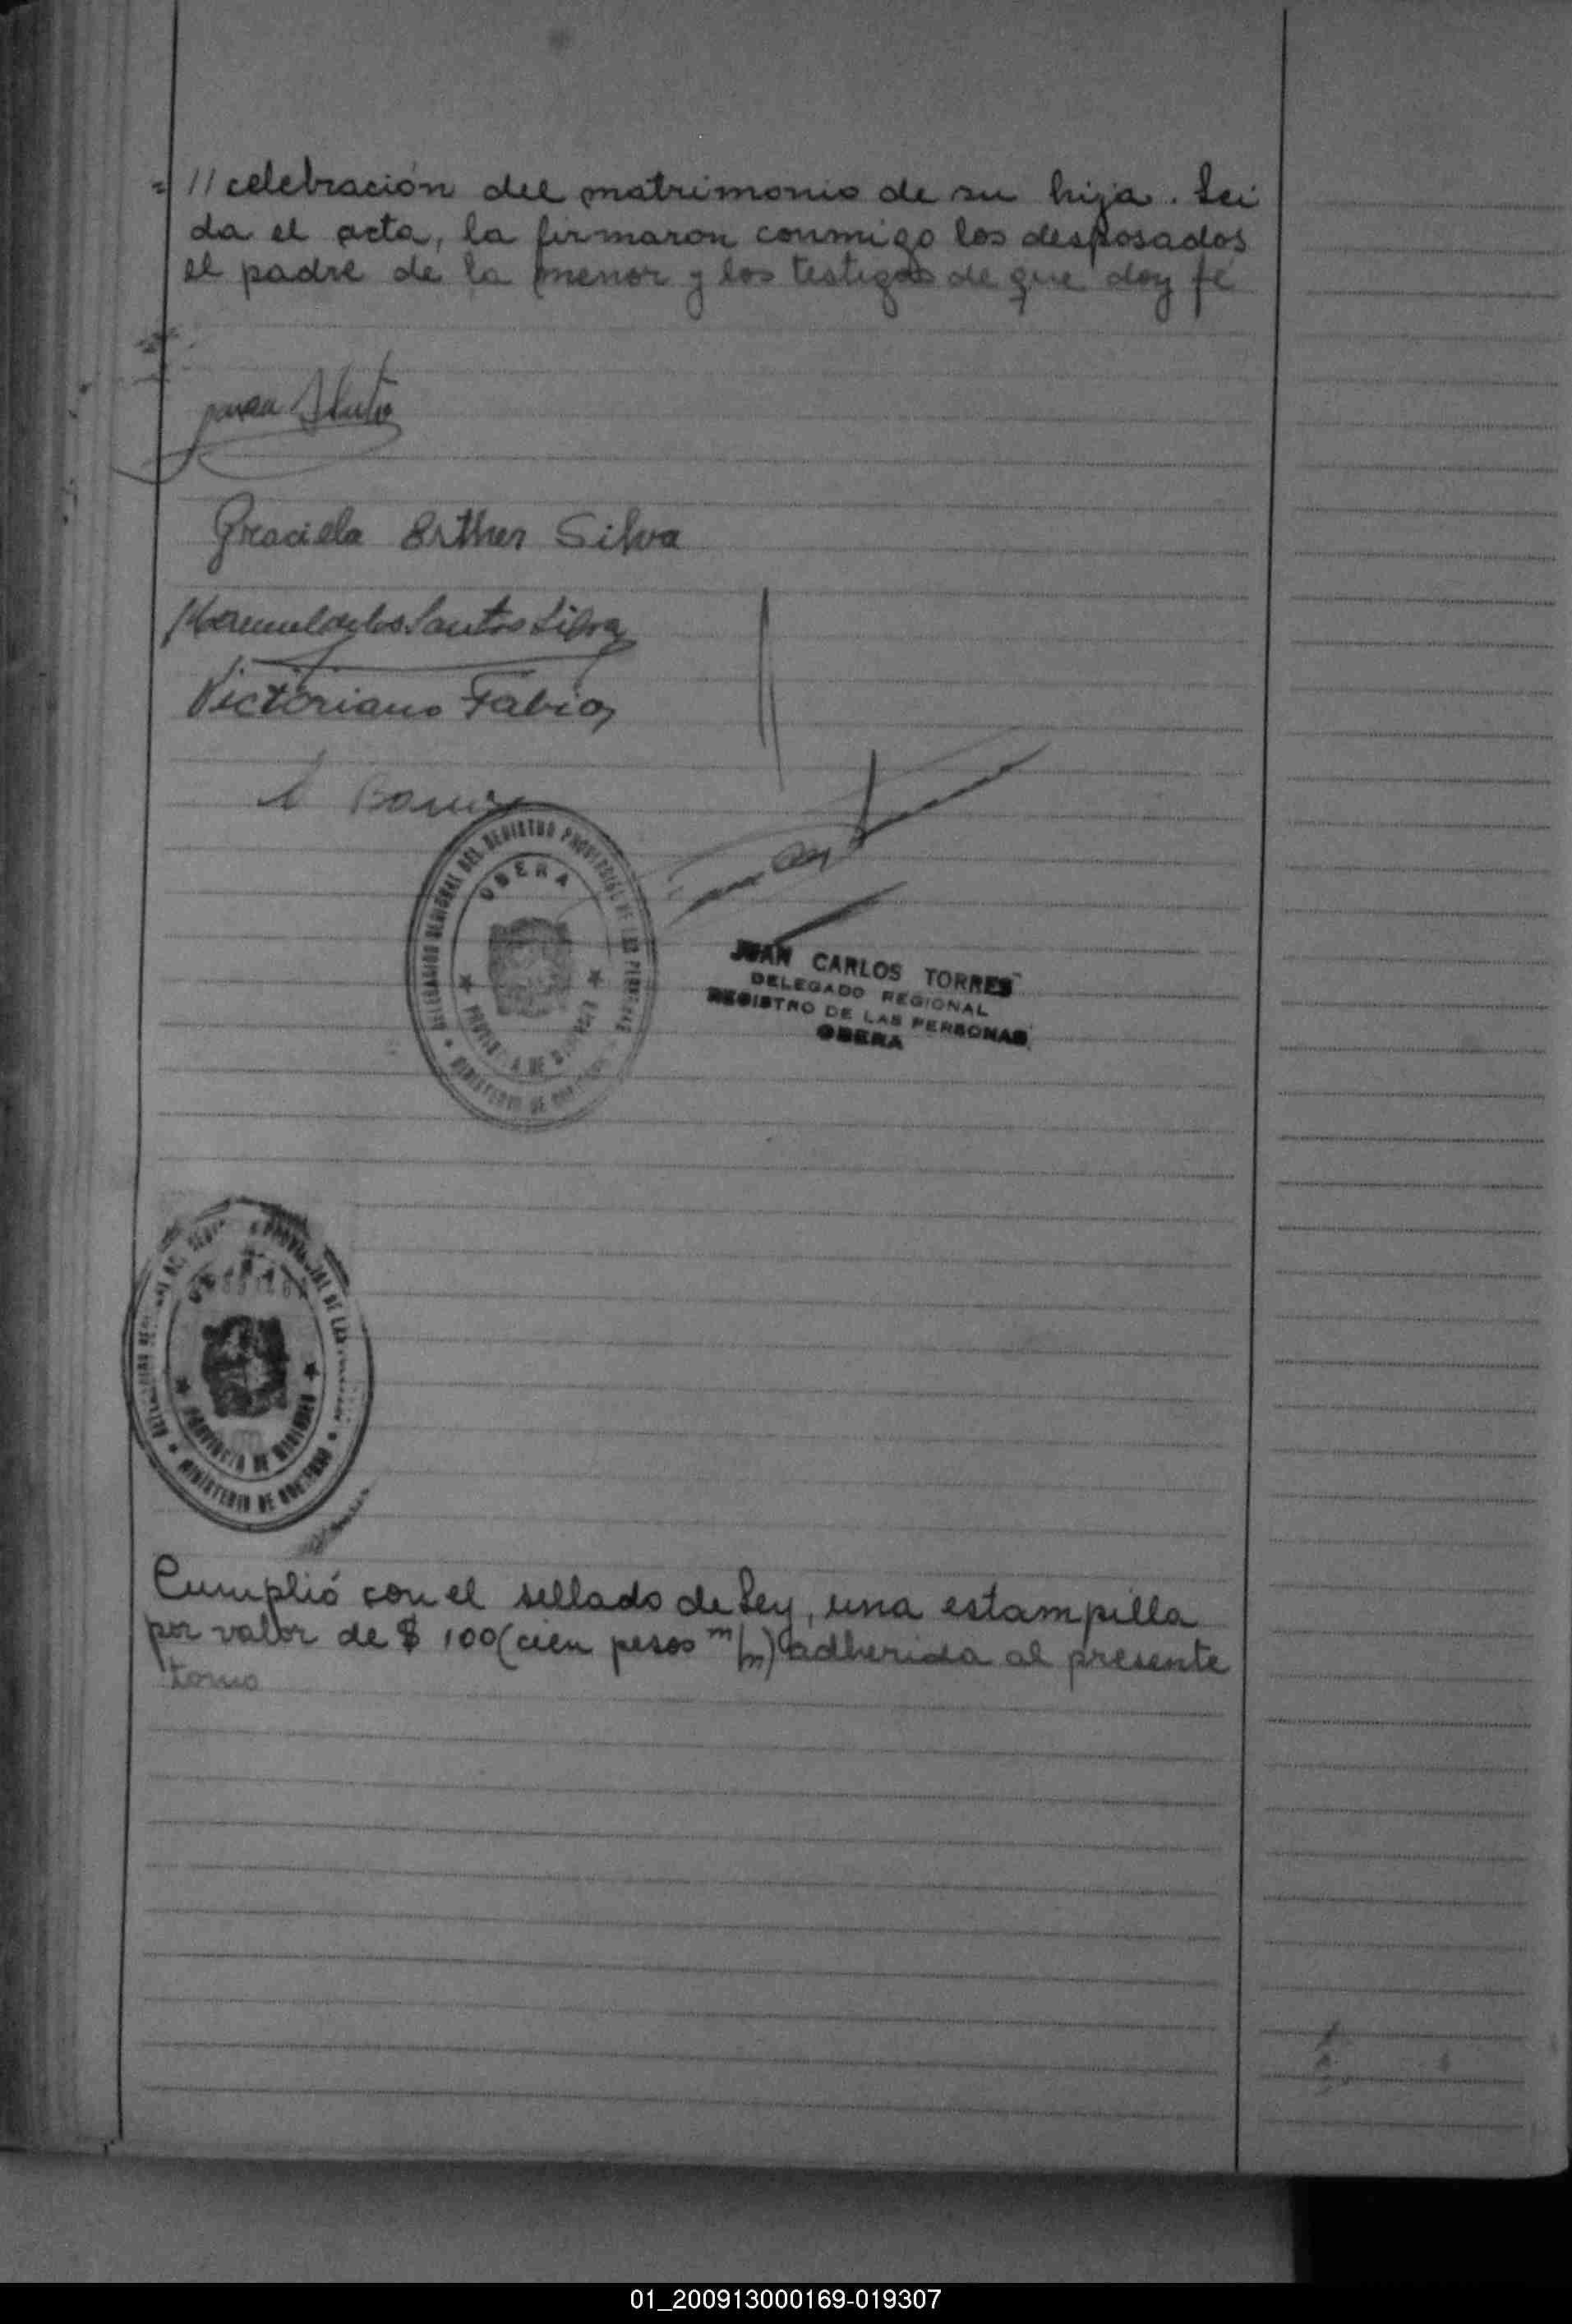 = // celebración del matrimonio de su hija. Lei
da el acta, la firmaron conmigo los desposados
el padre de la menor y los testigos de que doy fé
Graciela Esther Silva
Santos Silva
Victoriano Fabio
DELEGACION REGIONAL DEL REGISTRO PROVINCIAL DE LAS PERSONAS
OBERA
PROVINCIA DE MISIONES
MINISTERIO DE GOBIERNO
JUAN CARLOS TORRES
DELEGADO REGIONAL
REGISTRO DE LAS PERSONAS
OBERA
DELEGACION REGIONAL DEL REGISTRO PROVINCIAL DE LAS PERSONAS
OBERA
PROVINCIA DE MISIONES
MINISTERIO DE GOBIERNO
Cumplió con el sellado de Ley, una estampilla
por valor de $ 100 (cien pesos m/m) adherida al presente
tomo
01_200913000169-019307